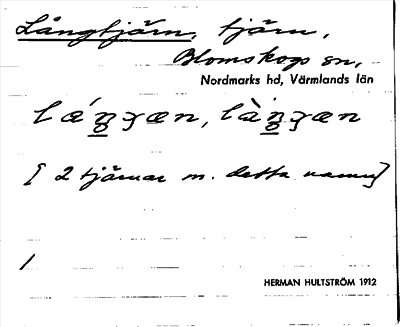 Långtjärn, tjärn,
Blomskogs sn,
Nordmarks hd, Värmlands län
[2 tjärnar m. detta namn]
/
HERMAN HULTSTRÖM 1912